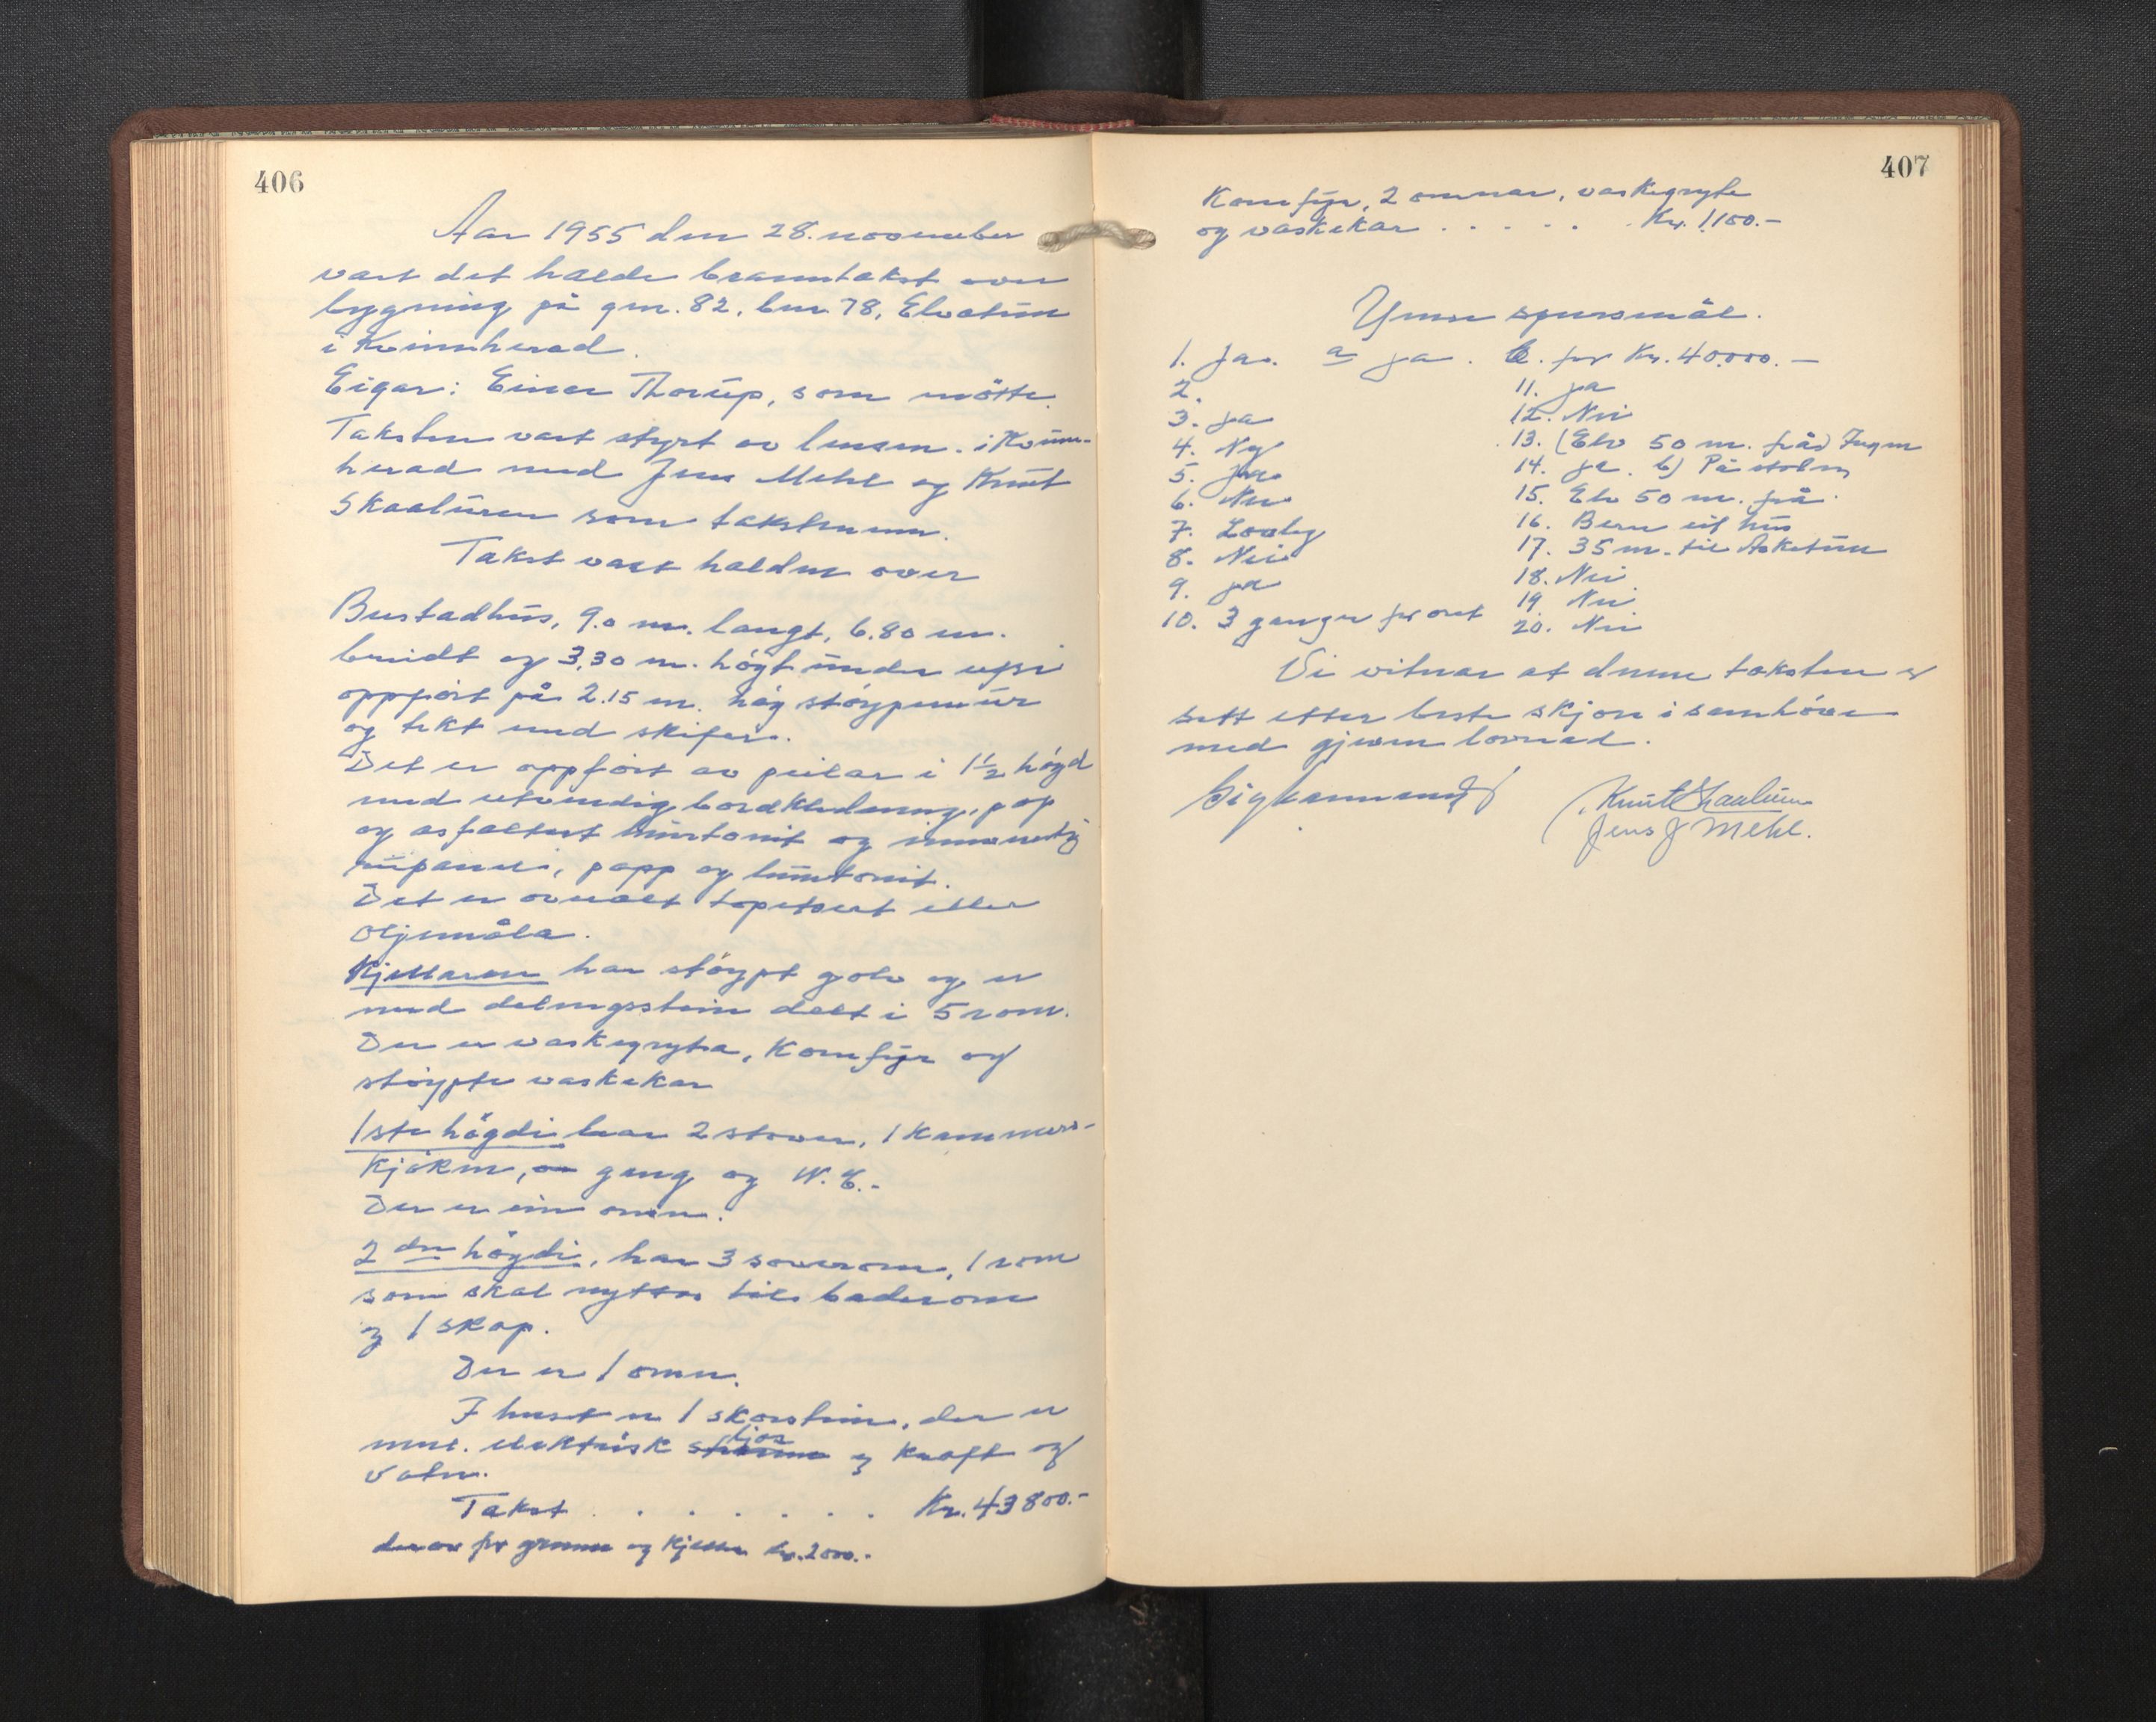 406
Aar 1955 den 28. november
vart det halde branntakst over
bygning på gnr. 82, bnr 78, Elvatun
i Kvinnherad.
Eigar: Einar Thorup, som møtte.
Taksten vart styrt av lensm. i Kvinn-
herad med Jens Mehl og Knut
Skaaluren som takstmenn.
Takst vart halden over
Bustadhus, 9.0 m. langt, 6.80 m.
breidt og 3,30 m. høgt under upsi
oppført på 2.15 m. høg støypemur
og tekt med skifer.
Det er oppført av peilar i 1½ høgd
med utvendig bordkledning, pap
og asfaltert huntonit og innvendig
rupanel, papp og huntonit.
Det er overalt tapetsert eller
oljemåla.
Kjellaren har støypt golv og er
med delingsstein delt i 5 rom.
Der er vaskegryta, komfyr og
støypte vaskekar
1ste høgdi har 2 stover, 1 kammers-
kjøken, gang og W.C.-
Der er ein omn.
2 dre høgdi, har 3 soverom, 1 rom
som skal nyttas til baderom
og 1 skap.
Der er 1 omn.
I huset er 1 skorstein, der er
innl. elektrisk straum ljos og kraft og
vatn.
Takst . . . . . . . Kr. 43800.-
derav for grunn og kjellar kr. 2000.-
407
Komfyr, 2 omnar, vaskegryte
og vaskekar . . . . . Kr. 1100.-
Ymse spursmål.
1. Ja. a ja. b. for Kr. 40.000.-
2.
3. ja
4. Ny
5. Ja
6. Nei
7. Lovleg
8. Nei
9. ja
10. 3 ganger for året
11. ja
12. Nei
13. (Elv 50 m. frå) Ingen
14. ja. b) På stolm
15. Elv 50 m. frå
16. Bere eit hus
17. 35 m. til Asketun
18. Nei
19. Nei
20. Nei
Vi vitnar at denne taksten er
sett etter beste skjøn i samhøve
med gjeven lovnad.
Knut Skaaluren
Jens J Mehl.